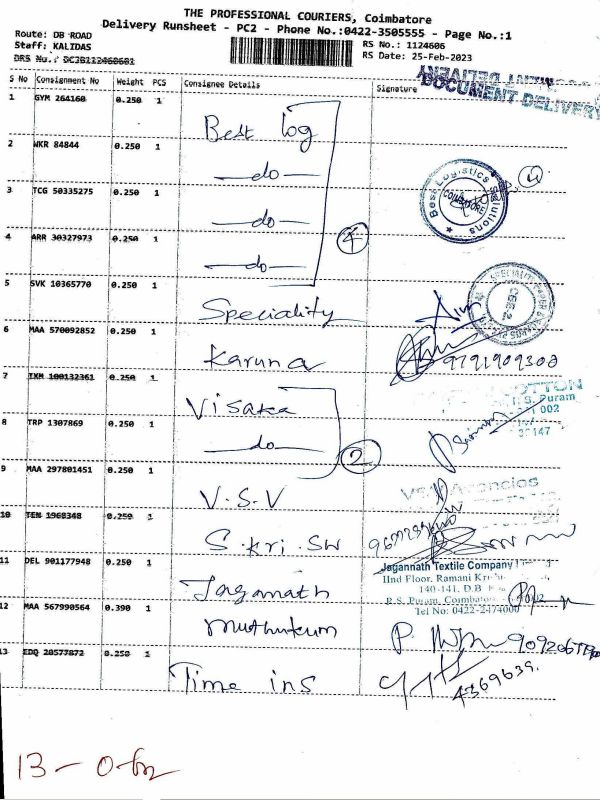 THE PROFESSIONAL COURIERS, Coimbatore
Delivery Runsheet - PC2 - Phone No.:0422-3505555 - Page No.:1
Route: DB ROAD
Staff: KALIDAS
DRS No.: DCJB112460601
RS No.: 1124606
RS Date: 25-Feb-2023
S No Consignment No Weight PCS Consignee Details Signature
DOCUMENT DELIVERY
1 GYM 264160 0.250 1 Best log
2 WKR 84844 0.250 1 —do—
Best Logistics Solutions
COIMBATORE
4
3 TCG 50335275 0.250 1 —do—
4 ARR 30327973 0.250 1 —do—
4
5 SVK 10365770 0.250 1 Speciality
6 MAA 570092852 0.250 1 Karuna 9791909308
7 IXM 100132361 0.250 1 Visaka
COTTON
R.S. Puram
8 TRP 1307869 0.250 1 —do—
2
9 MAA 297801451 0.250 1 V.S.V
Agencies
10 TEN 1960348 0.250 1 S.kri.SW
11 DEL 901177948 0.250 1 Jagannath
Jagannath Textile Company
IInd Floor, Ramani
140-141, D.B
R.S. Puram, Coimbatore
Tel No: 0422-2474000
12 MAA 567990564 0.390 1 muthukum
13 EDQ 20577872 0.250 1 Time ins
4369639.
13 -